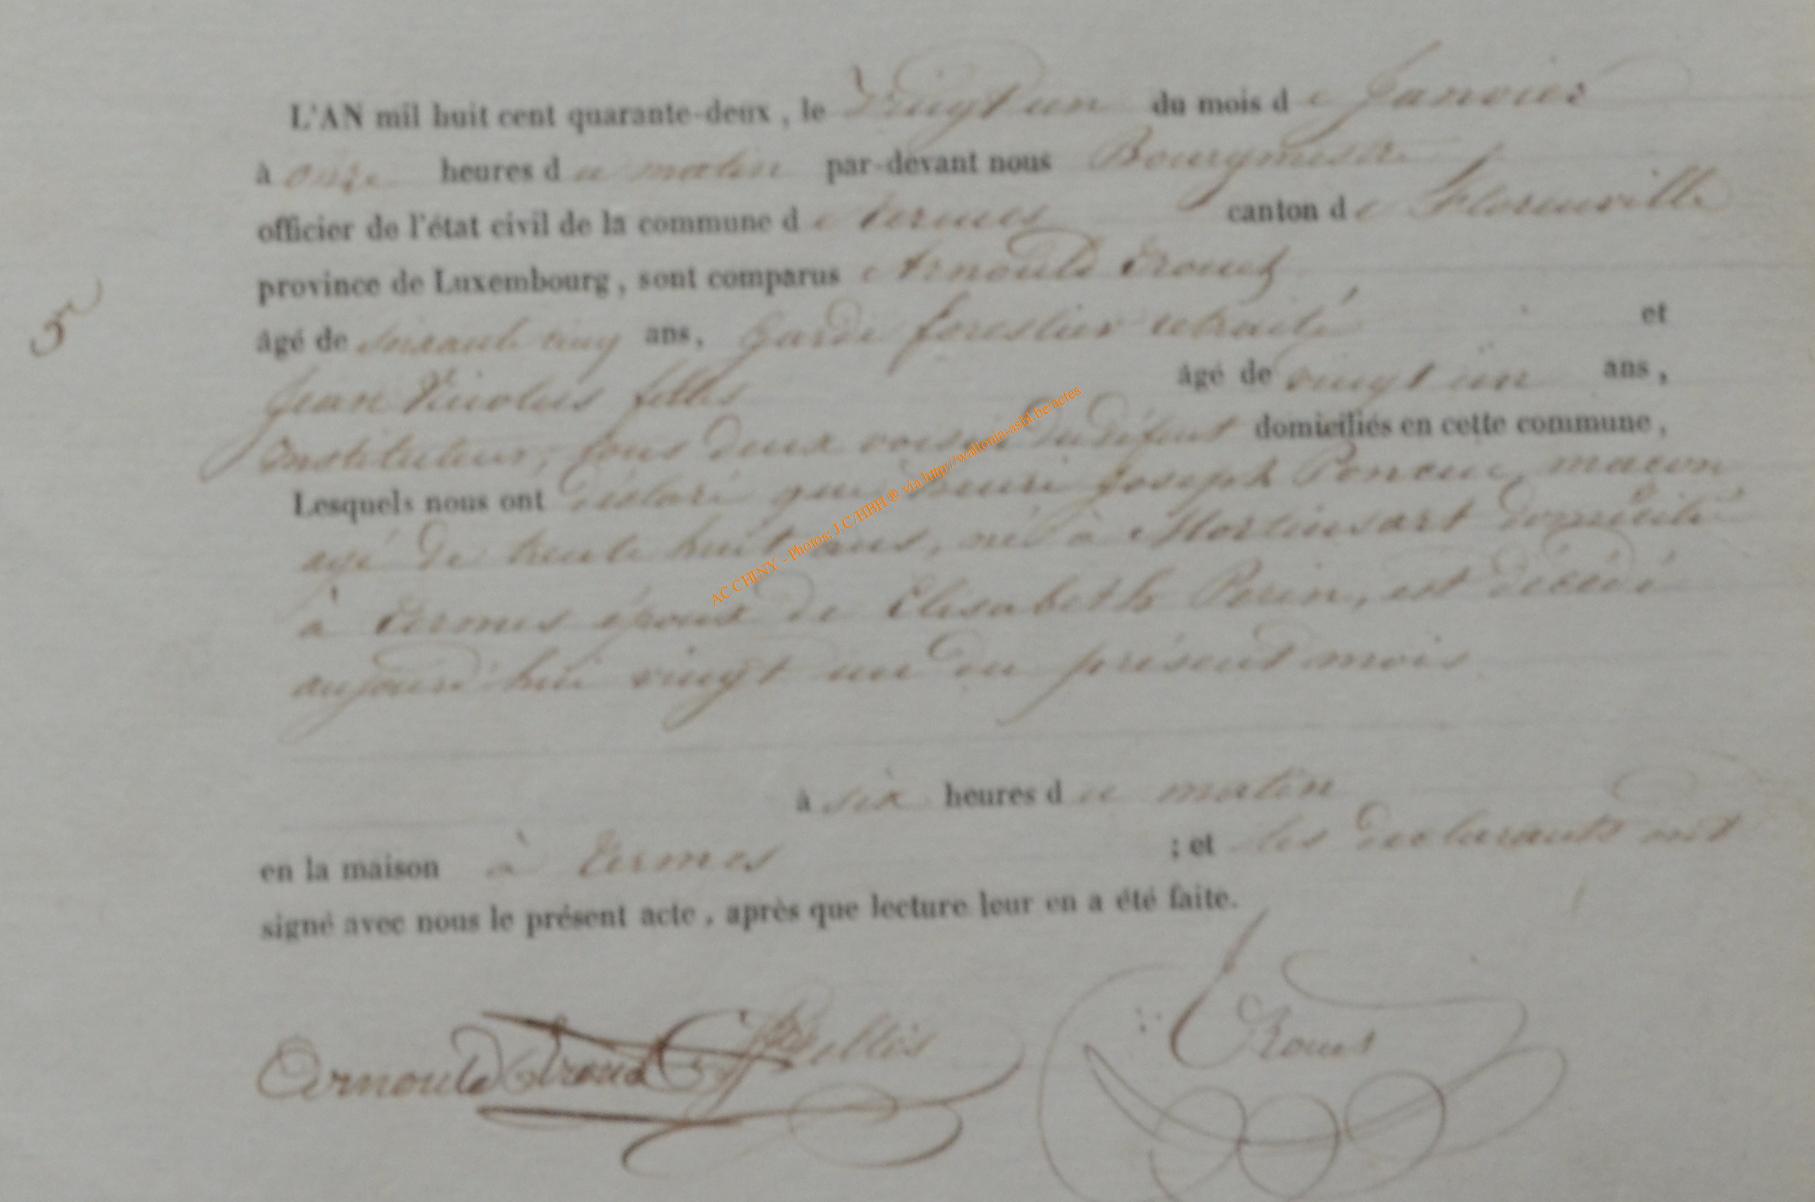 L'AN mil huit cent quarante-deux, le vingt un du mois de Janvier
à onze heures du matin par-devant nous Bourgmestre
officier de l'état civil de la commune de Termes canton de Florenville
province de Luxembourg, sont comparus Arnould
5
âgé de soixante cinq ans, garde forestier retraité et
Jean Nicolas âgé de vingt un ans,
instituteur, tous deux voisins du défunt domiciliés en cette commune,
Lesquels nous ont déclaré que Henri Joseph Poncin, maçon
agé de trente huit ans, né à Mortinsart domicilié
à Termes époux de Elisabeth Perin, est décédé
aujourd'hui vingt un du présent mois
à six heures du matin
en la maison à Termes ; et les declarants ont
signé avec nous le présent acte, après que lecture leur en a été faite.
Arnould
AC CHINY - Photos: J.C/HBH@ via http://wallonie-asbl.be/actes